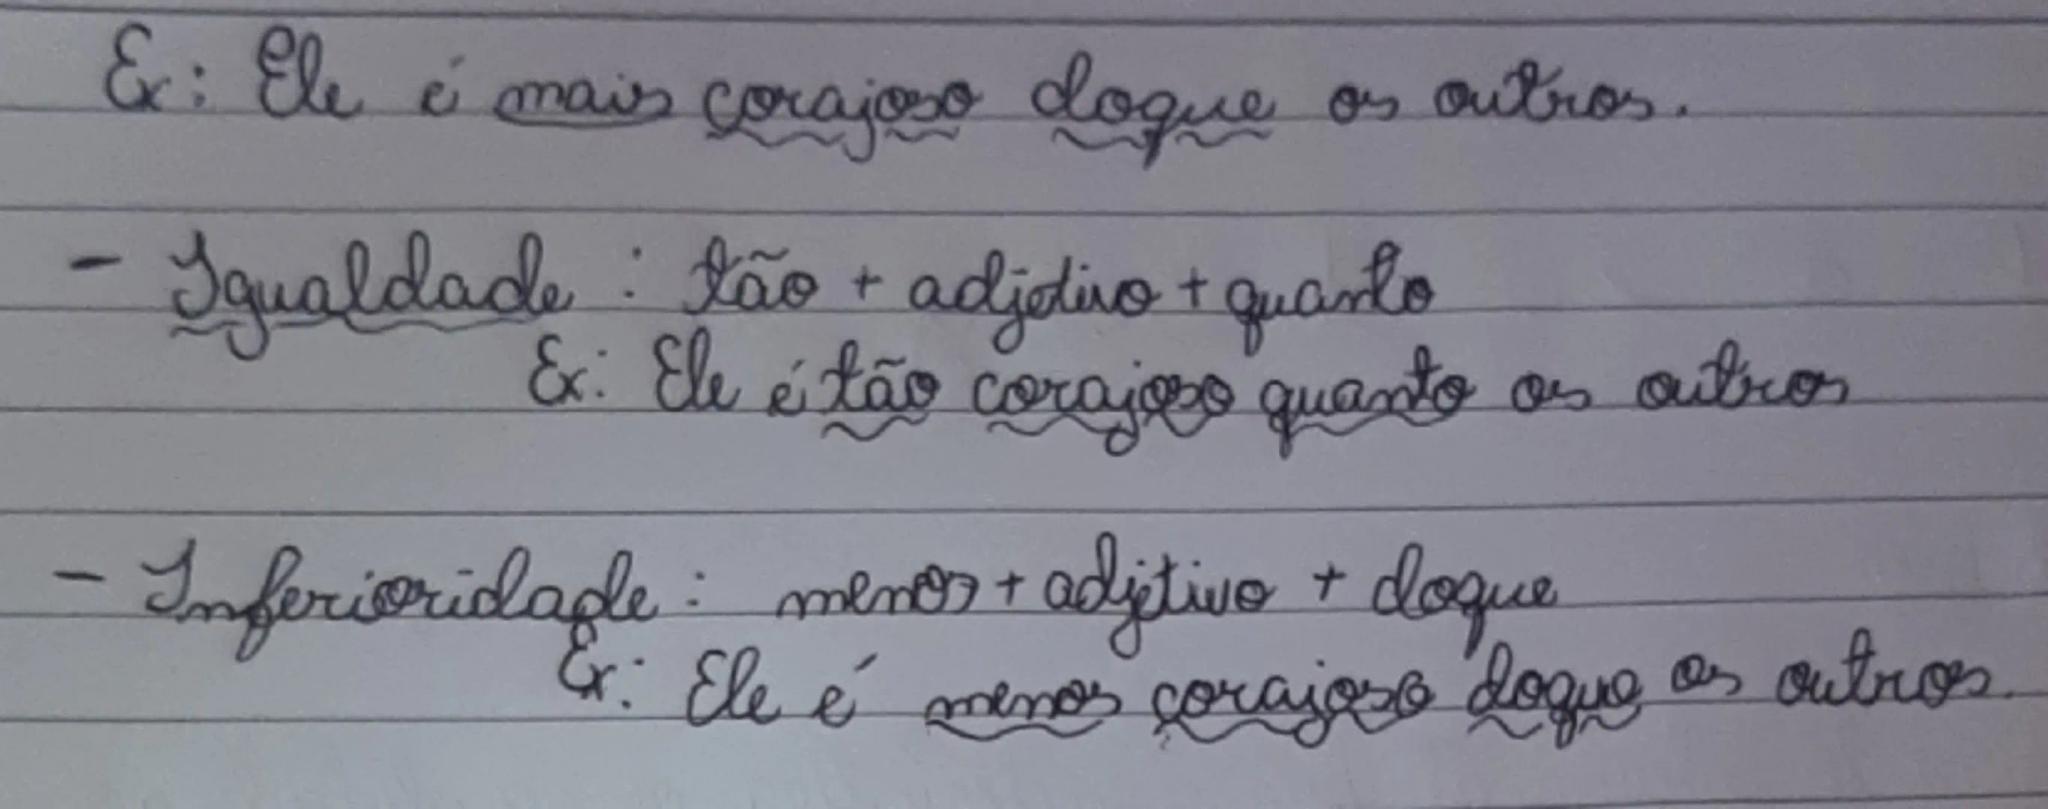 Ex: Ele é mais corajoso doque os outros.
- Igualdade : tão + adjetivo + quanto
Ex: Ele é tão corajoso quanto os outros
- Inferioridade : menos + adjetivo + doque
Ex: Ele é menos corajoso doque os outros.